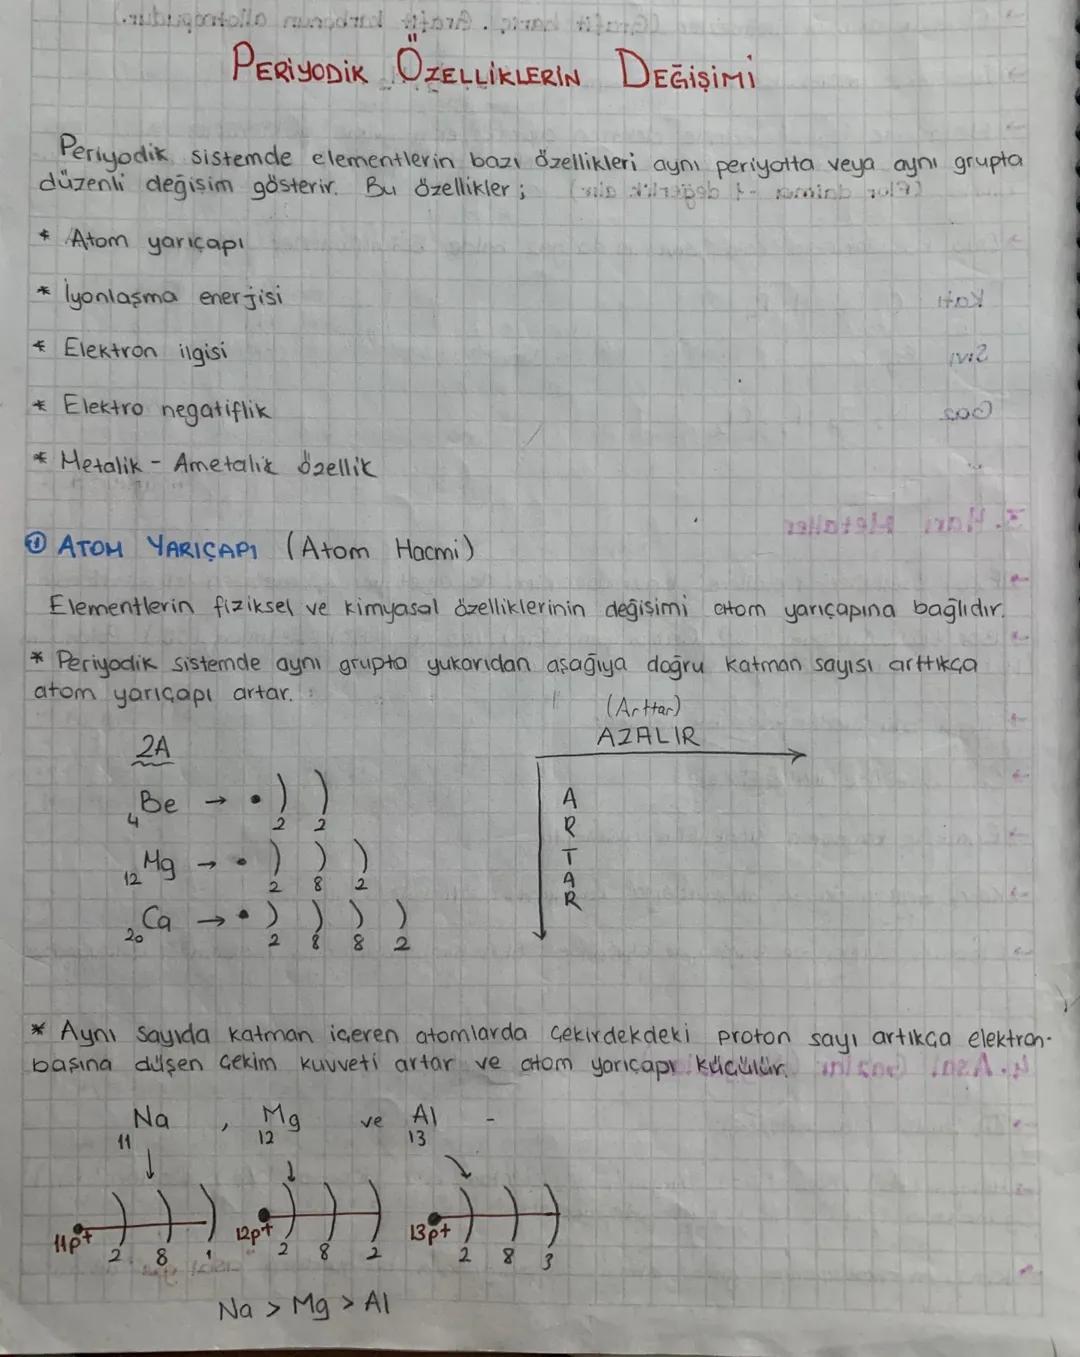 PERİYODİK ÖZELLİKLERİN DEĞİŞİMİ
Periyodik sistemde elementlerin bazı özellikleri aynı periyotta veya aynı grupta
düzenli değişim gösterir. Bu özellikler;
* Atom yarıçapı
* İyonlaşma enerjisi
* Elektron ilgisi
* Elektro negatiflik
* Metalik - Ametalik özellik
① ATOM YARIÇAPI (Atom Hacmi)
Elementlerin fiziksel ve kimyasal özelliklerinin değişimi atom yarıçapına bağlıdır.
* Periyodik sistemde aynı grupta yukarıdan aşağıya doğru katman sayısı arttıkça
atom yarıçapı artar.
(Arttar)
AZALIR
ARTAR
2A
4Be → • ) )
2 2
12Mg → • ) ) )
2 8 2
20Ca → • ) ) ) )
2 8 8 2
* Aynı sayıda katman içeren atomlarda çekirdekdeki proton sayı artıkça elektron-
başına düşen çekim kuvveti artar ve atom yarıçapı küçülür.
Na , Mg ve Al -
11 12 13
11p+ 12p+ 13p+
2 8 1 2 8 2 2 8 3
Na > Mg > Al